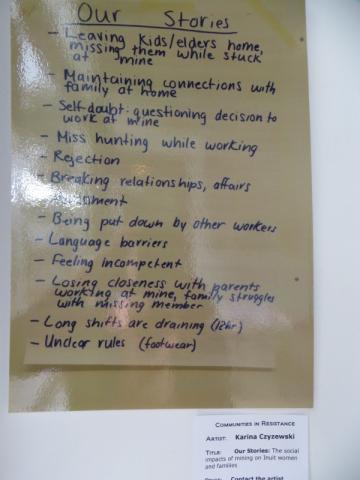 Our Stories
- Leaving Kids/elders home,
missing them while stuck
at mine
- Maintaining connections with
family at home
- Self-doubt: questioning decision to
work at mine
- Miss hunting while working
- Rejection
- Breaking relationships, affairs
- Being put down by other workers
- Language barriers
- Feeling incompetent
- Losing closeness with parents
working at mine, family struggles
with missing member
- Long shifts are draining (12hr)
- Unclear rules (footwear)
COMMUNITIES IN RESISTANCE
ARTIST: Karina Czyzewski
TITLE: Our Stories: The social
impacts of mining on Inuit women
and families
Contact the artist